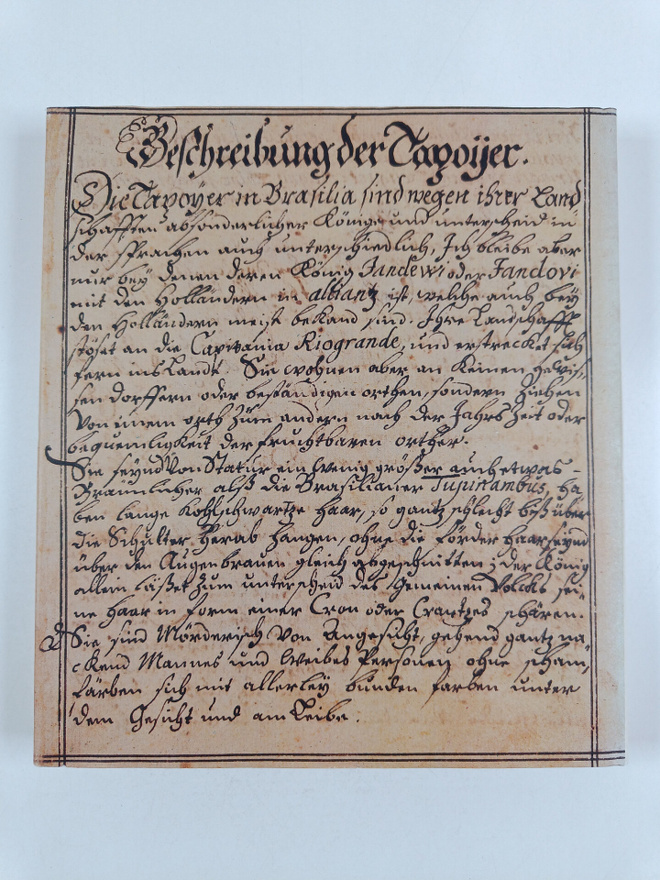 Beschreibung der Tapoÿer.
Die Tapoyer in Brasilia sind wegen ihrer Land
schafften absonderlicher Könige und unterscheid in
der sprachen auch unterschiedlich, Ich bleibe aber
nur beÿ denen deren König Jandewi oder Jandovi
mit den Holländern in alliantz ist, welche auch beÿ
den Holländern meist bekand sind. Ihre Landschafft
stöset an die Capitania Riogrande, und erstrecket sich
fern ins Landt. Sie wohnen aber an keinen gewis=
sen dorffern oder beständigen orthen, sondern ziehen
Von einem orth zum andern nach der Jahrs Zeit oder
bequemligkeit der fruchtbaren orther.
Sie seÿnd Von Statur ein wenig größer auch etwas =
Bräunlicher alß die Brasilianer Tupinambus, ha
ben lange kohlschwartze Haar, so gantz schlecht biß über
die Schulter herab hangen, ohne die förder Haar seÿnd
über den Augenbrauen gleich abgeschnitten; der König
allein läßet zum unterscheid des Gemeinen Volcks sei=
ne Haar in form einer Cron oder Crantzes schären.
Sie sind Mörderisch Von Angesicht, gehend gantz na
ckend Mannes und Weibes Personen ohne scham,
färben sich mit allerleÿ bunden farben unter
dem Gesicht und am Leibe.